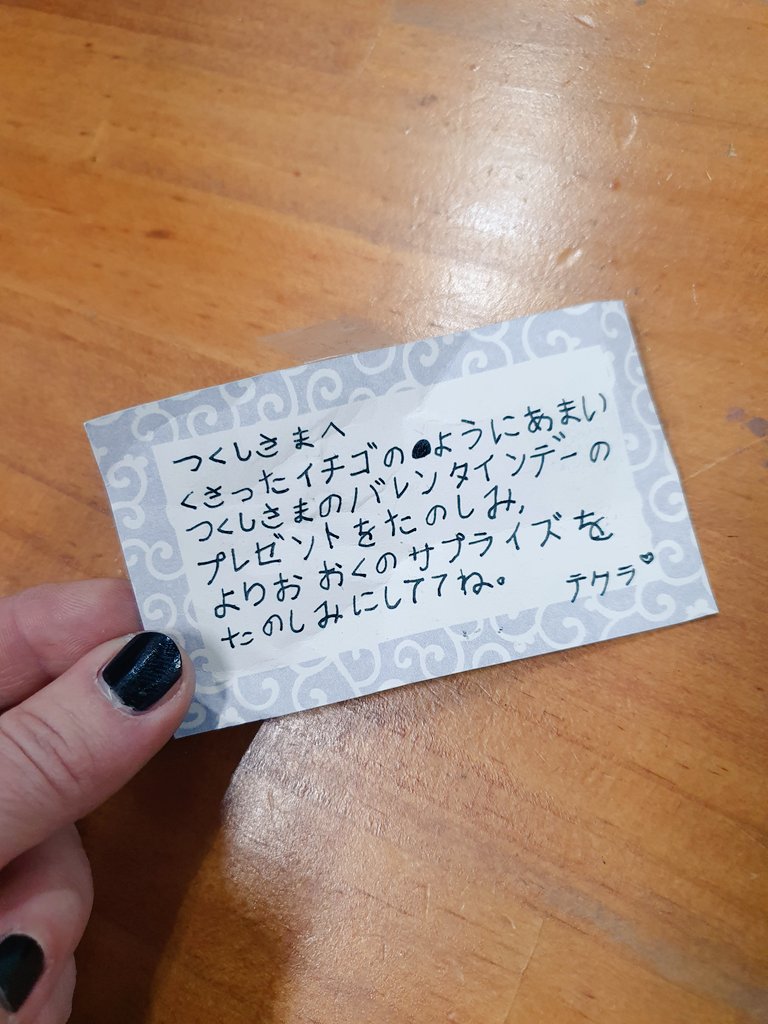 つくしさまへ
くさったイチゴのようにあまい
つくしさまのバレンタインデーの
プレゼントをたのしみ,
よりお おくのサプライズを
たのしみにしててね。
テクラ♡